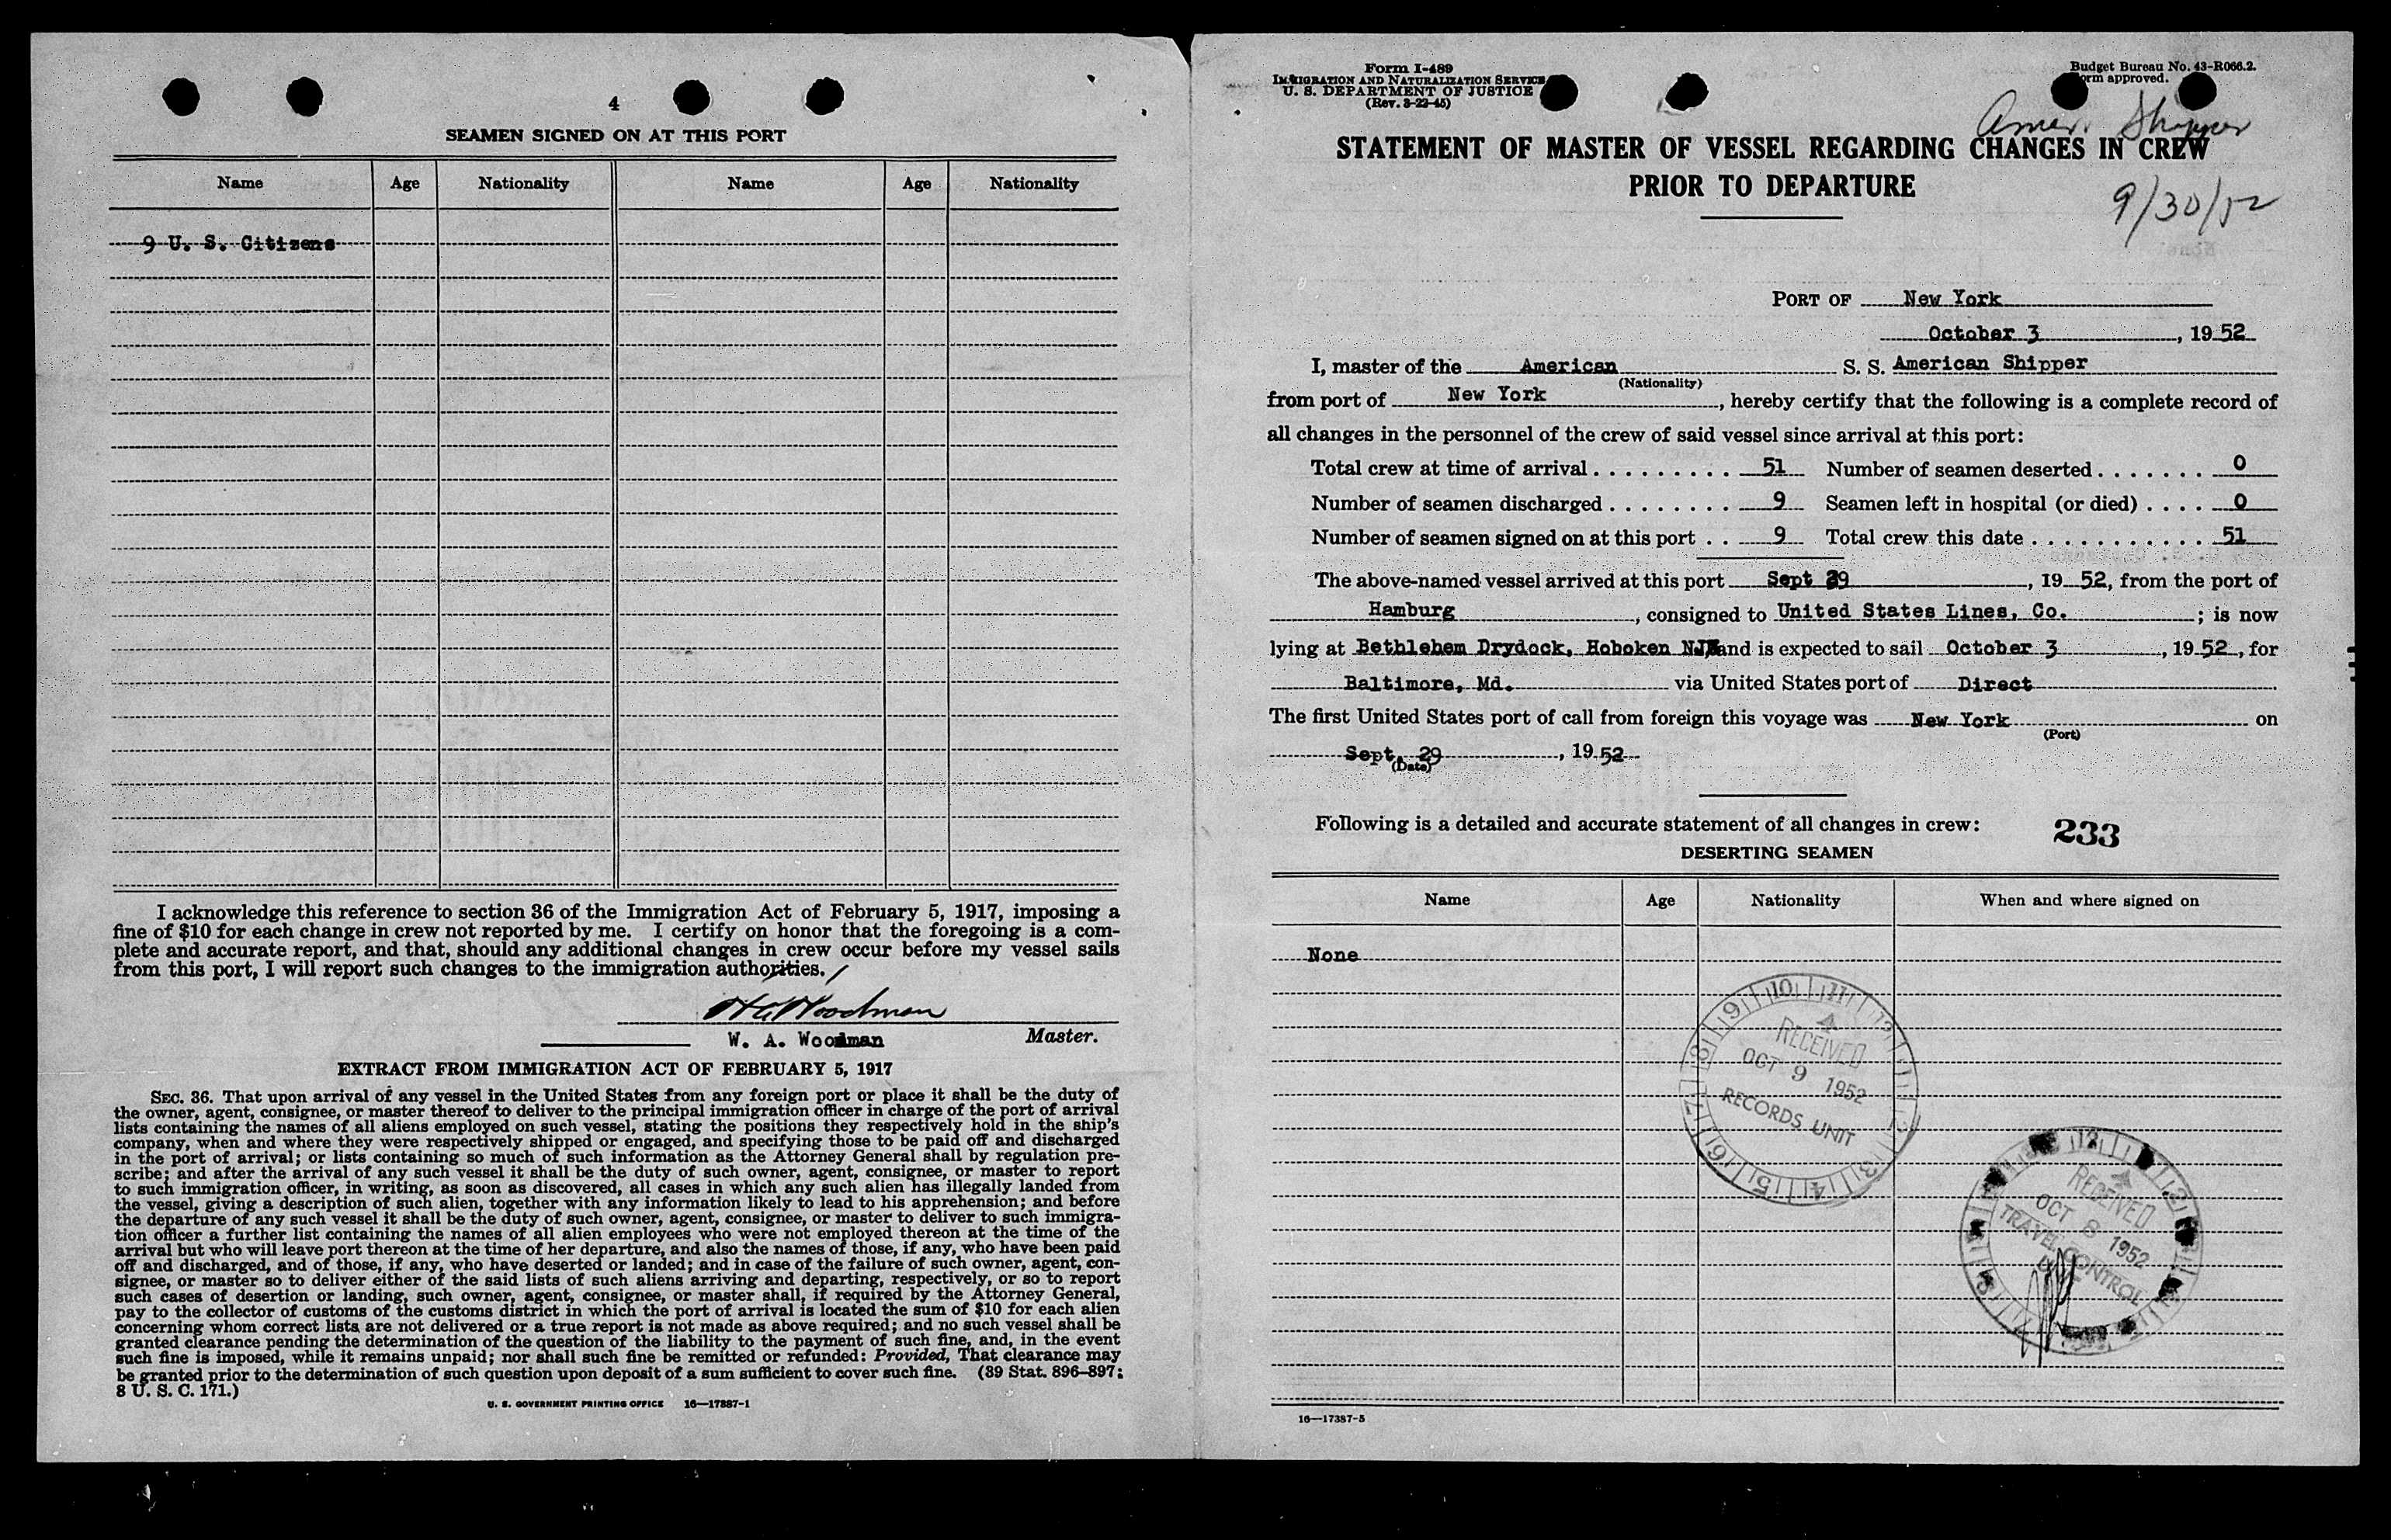 4
SEAMEN SIGNED ON AT THIS PORT
Name Age Nationality Name Age Nationality
9 U. S. Citizens
I acknowledge this reference to section 36 of the Immigration Act of February 5, 1917, imposing a
fine of $10 for each change in crew not reported by me. I certify on honor that the foregoing is a com-
plete and accurate report, and that, should any additional changes in crew occur before my vessel sails
from this port, I will report such changes to the immigration authorities.
W. A. Woodman Master.
EXTRACT FROM IMMIGRATION ACT OF FEBRUARY 5, 1917
SEC. 36. That upon arrival of any vessel in the United States from any foreign port or place it shall be the duty of
the owner, agent, consignee, or master thereof to deliver to the principal immigration officer in charge of the port of arrival
lists containing the names of all aliens employed on such vessel, stating the positions they respectively hold in the ship's
company, when and where they were respectively shipped or engaged, and specifying those to be paid off and discharged
in the port of arrival; or lists containing so much of such information as the Attorney General shall by regulation pre-
scribe; and after the arrival of any such vessel it shall be the duty of such owner, agent, consignee, or master to report
to such immigration officer, in writing, as soon as discovered, all cases in which any such alien has illegally landed from
the vessel, giving a description of such alien, together with any information likely to lead to his apprehension; and before
the departure of any such vessel it shall be the duty of such owner, agent, consignee, or master to deliver to such immigra-
tion officer a further list containing the names of all alien employees who were not employed thereon at the time of the
arrival but who will leave port thereon at the time of her departure, and also the names of those, if any, who have been paid
off and discharged, and of those, if any, who have deserted or landed; and in case of the failure of such owner, agent, con-
signee, or master so to deliver either of the said lists of such aliens arriving and departing, respectively, or so to report
such cases of desertion or landing, such owner, agent, consignee, or master shall, if required by the Attorney General,
pay to the collector of customs of the customs district in which the port of arrival is located the sum of $10 for each alien
concerning whom correct lists are not delivered or a true report is not made as above required; and no such vessel shall be
granted clearance pending the determination of the question of the liability to the payment of such fine, and, in the event
such fine is imposed, while it remains unpaid; nor shall such fine be remitted or refunded: Provided, That clearance may
be granted prior to the determination of such question upon deposit of a sum sufficient to cover such fine. (39 Stat. 896–897;
8 U. S. C. 171.)
U. S. GOVERNMENT PRINTING OFFICE 16—17387-1
Form I-489
IMMIGRATION AND NATURALIZATION SERVICE
U. S. DEPARTMENT OF JUSTICE
(Rev. 3-22-45)
Budget Bureau No. 43-R066.2.
Form approved.
Amer. Shipper
STATEMENT OF MASTER OF VESSEL REGARDING CHANGES IN CREW
PRIOR TO DEPARTURE
9/30/52
PORT OF New York
October 3, 1952
I, master of the American S. S. American Shipper
(Nationality)
from port of New York, hereby certify that the following is a complete record of
all changes in the personnel of the crew of said vessel since arrival at this port:
Total crew at time of arrival . . . . . . . . . 51 Number of seamen deserted . . . . . . . 0
Number of seamen discharged . . . . . . . . 9 Seamen left in hospital (or died) . . . . 0
Number of seamen signed on at this port . . 9 Total crew this date . . . . . . . . . . . . 51
The above-named vessel arrived at this port Sept 29, 1952, from the port of
Hamburg, consigned to United States Lines, Co.; is now
lying at Bethlehem Drydock, Hoboken NJ and is expected to sail October 3, 1952, for
Baltimore, Md. via United States port of Direct
The first United States port of call from foreign this voyage was New York on
(Port)
Sept. 29, 1952
(Date)
Following is a detailed and accurate statement of all changes in crew: 233
DESERTING SEAMEN
Name Age Nationality When and where signed on
None
RECEIVED
OCT 9 1952
RECORDS UNIT
RECEIVED
OCT 8 1952
TRAVEL CONTROL
16—17387-5